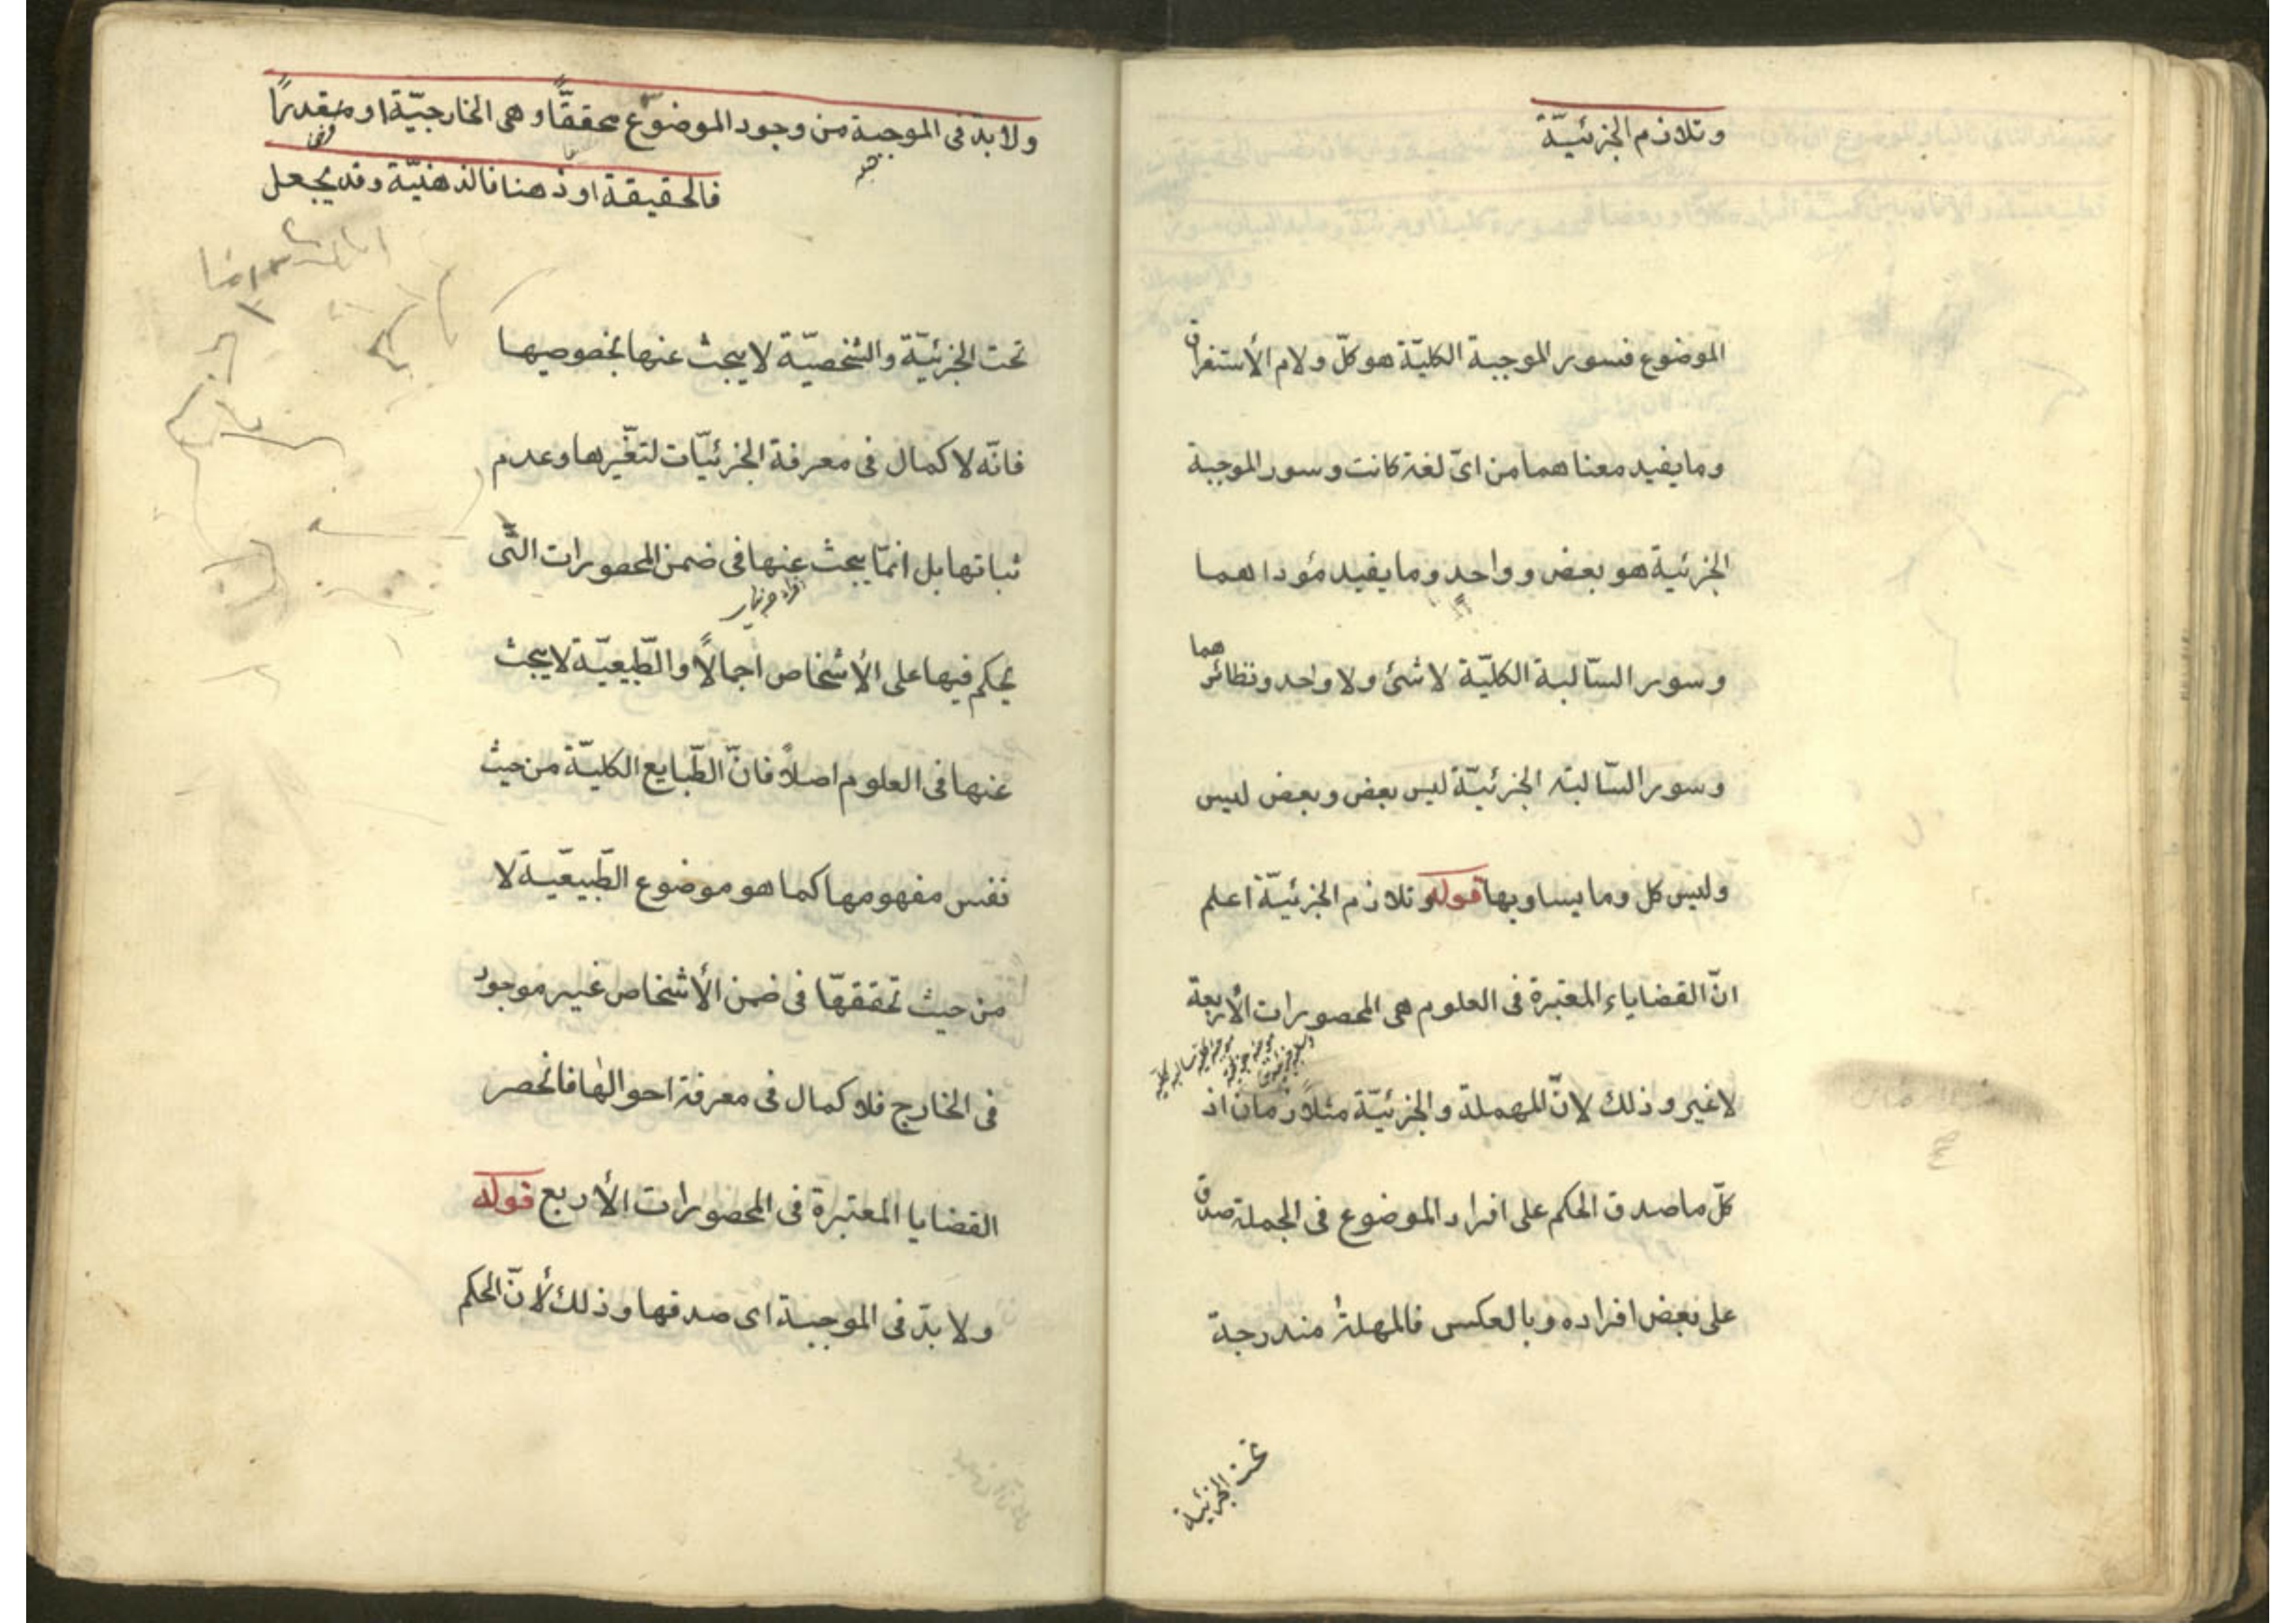 وتلازم الجزئيّة
الموضوع فسور الموجبة الكليّة هو كلّ ولام الأستغراق
وما يفيد معناهما من اىّ لغة كانت وسور الموجبة
الجزئية هو بعض وواحد وما يفيد مؤداهما
وسور السّالبة الكليّة لا شئ ولا واحد ونظائرهما
وسور السّالبة الجزئيّة ليس بعض وبعض ليس
وليس كل وما يساويها قوله وتلازم الجزئيّة اعلم
انّ القضاياء المعتبرة فى العلوم هى المحصورات الأربعة
لا غير وذلك لانّ المهملة والجزئيّة متلازمان اذ
كلّ ما صدق الحكم على افراد الموضوع فى الجملة صدق
على بعض افراده وبالعكس فالمهلة مندرجة
تحت الجزئية
ولا بدّ فى الموجبة من وجود الموضوع محققًّا وهى الخارجيّة او مقدرًا
فالحقيقة او ذهنا فالذهنيّة وقد يجعل
تحت الجزئيّة والشخصيّة لا يبحث عنها بخصوصها
فانّه لا كمال فى معرفة الجزئيّات لتغّيرها وعدم
ثباتها بل انمّا يبحث عنها فى ضمن المحصورات التّى
يحكم فيها على الأشخاص اجمالًا والطّبيعيّة لا يبحث
عنها فى العلوم اصلاً فانّ الطّبايع الكليّة من حيث
نفس مفهومها كما هو موضوع الطّبيعيّة لا
من حيث تحققهّا فى ضمن الأشخاص غير موجود
فى الخارج فلا كمال فى معرفة احوالها فانحصر
القضايا المعتبرة فى المحصورات الأربع قوله
ولا بدّ فى الموجبة اى صدقها وذلك لأنّ الحكم